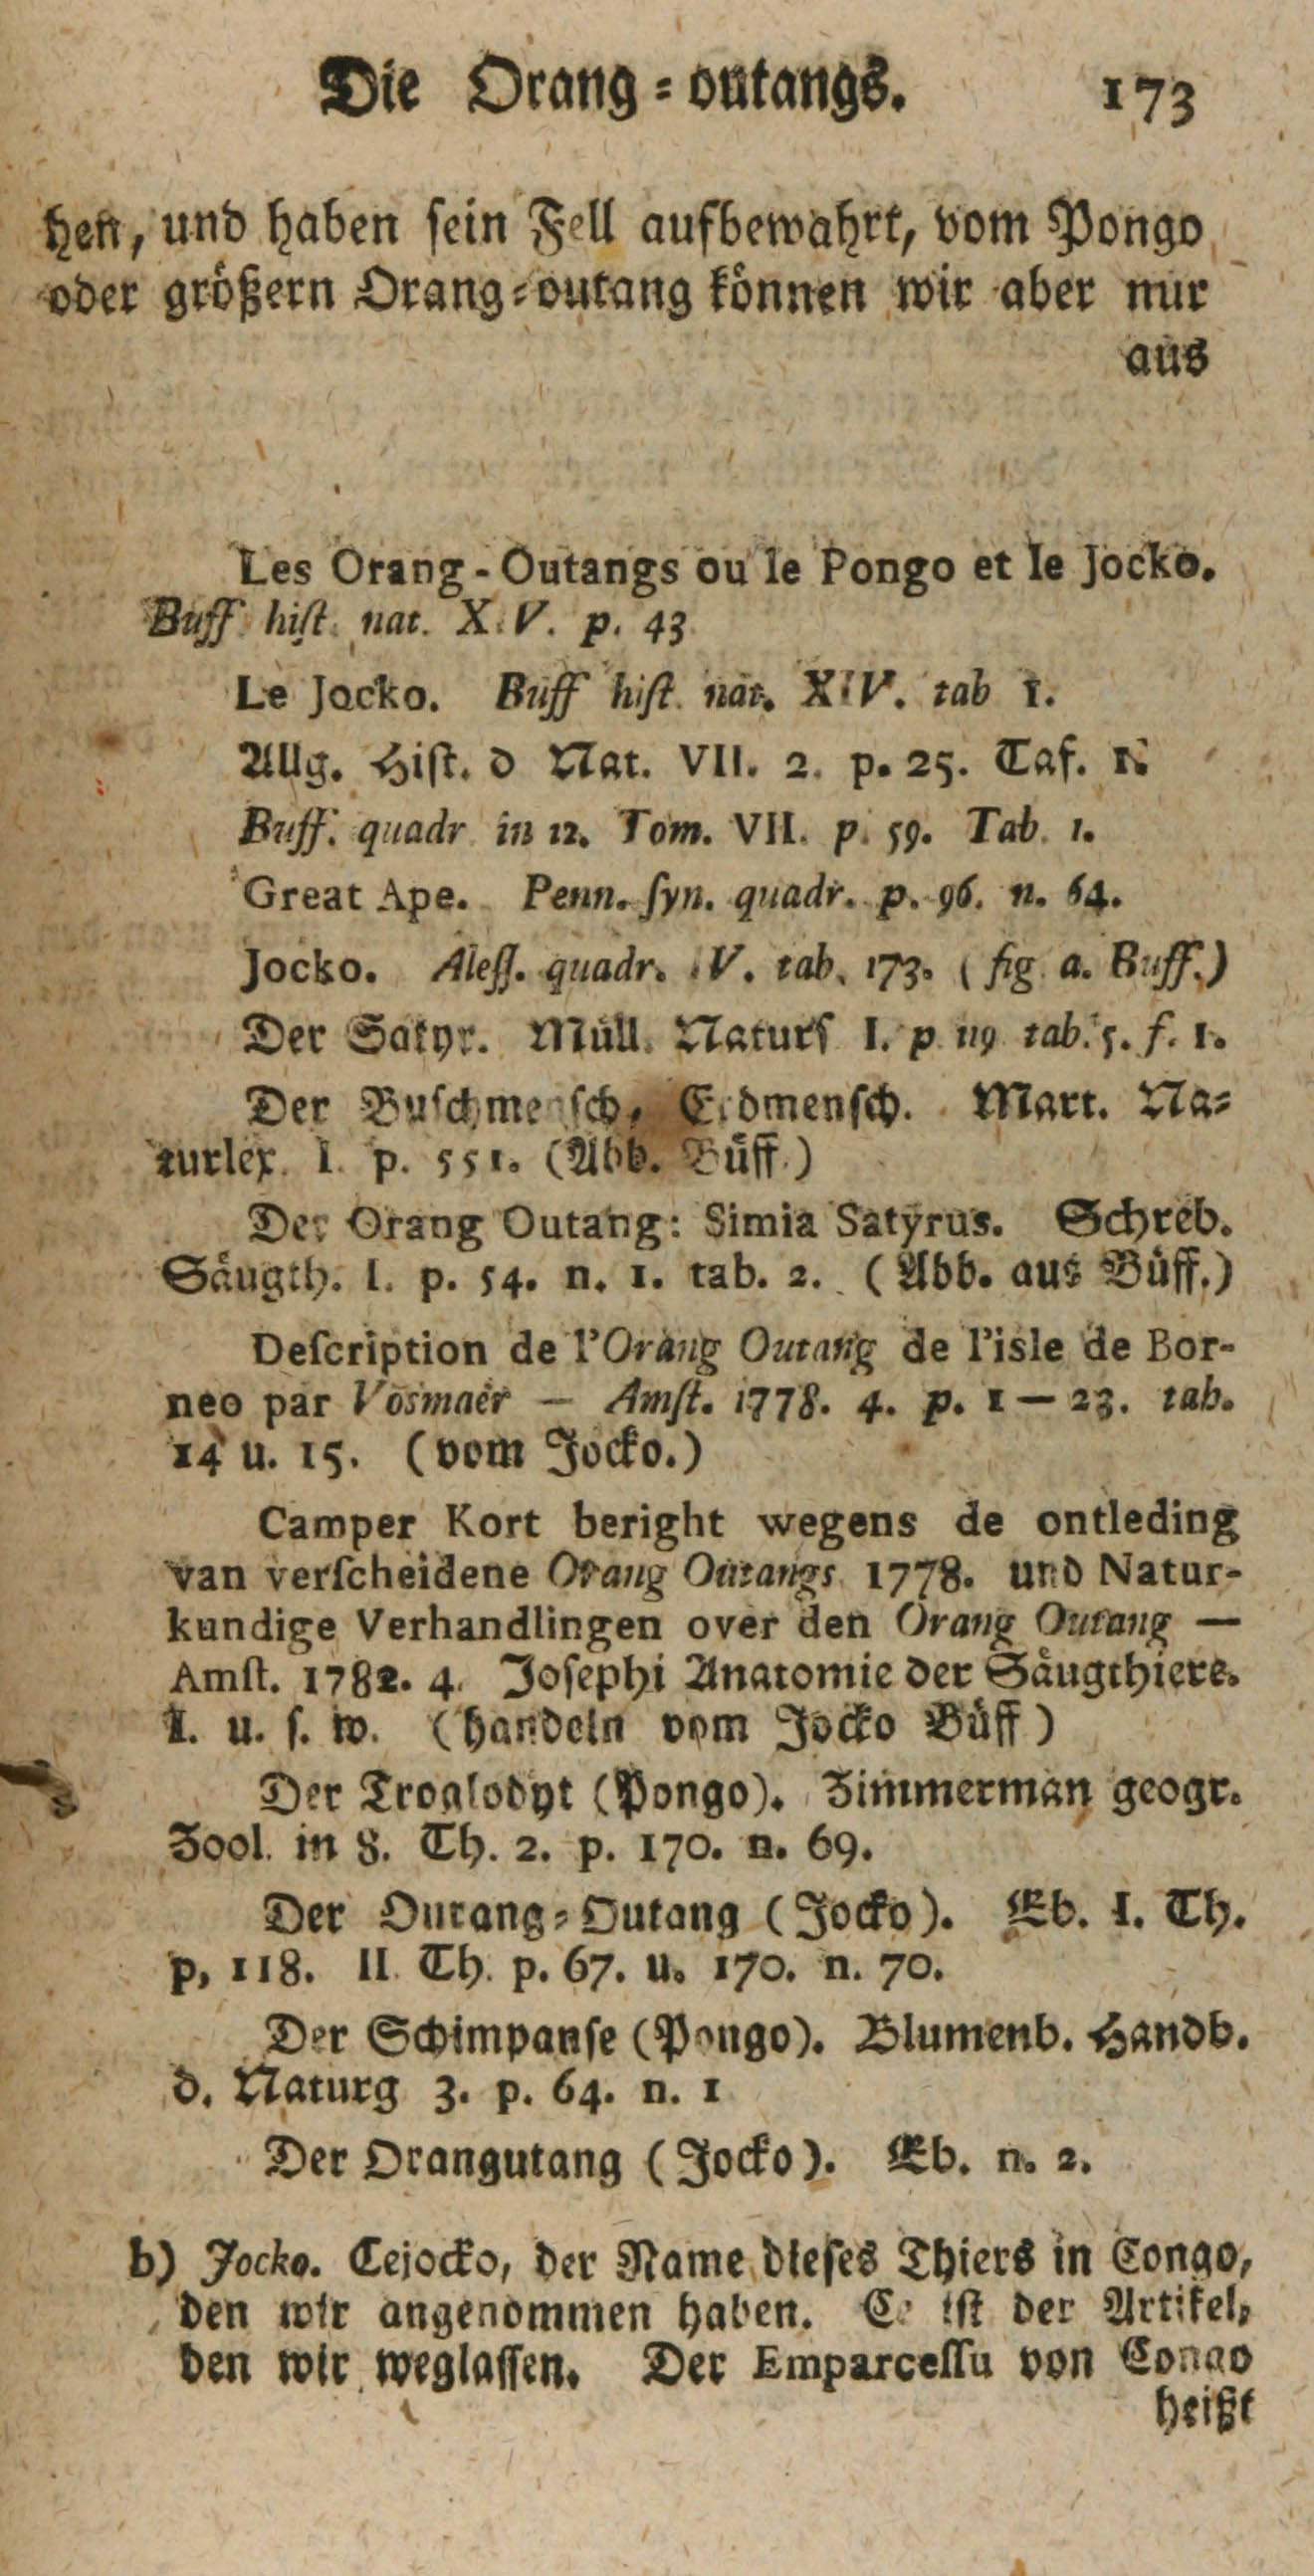 Die Orang-outangs. 173
hen, und haben sein Fell aufbewahrt, vom Pongo
oder größern Orang-outang können wir aber nur
aus
Les Orang-Outangs ou le Pongo et le Jocko.
Buff hiſt. nat. X.V. p. 43
Le Jocko. Buff hiſt. nat. XIV. tab 1.
Allg. Hist. d Nat. VII. 2. p. 25. Taf. 1.
Buff. quadr in 12. Tom. VII. p. 59. Tab. 1.
Great Ape. Penn. ſyn. quadr. p. 96. n. 64.
Jocko. Aleſſ. quadr. IV. tab. 173. (fig. a. Buff.)
Der Satyr. Müll. Naturs I. p 119 tab. 5. f. 1.
Der Buschmensch, Erdmensch. Mart. Na-
turlex. I. p. 551. (Abb. Büff.)
Der Orang Outang: Simia Satyrus. Schreb.
Säugth. I. p. 54. n. 1. tab. 2. (Abb. aus Büff.)
Deſcription de l'Orang Outang de l'isle de Bor-
neo par Vosmaër — Amſt. 1778. 4. p. 1—23. tab.
14 u. 15. (vom Jocko.)
Camper Kort beright wegens de ontleding
van verſcheidene Orang Outangs 1778. und Natur-
kundige Verhandlingen over den Orang Outang —
Amſt. 1782. 4. Josephi Anatomie der Säugthiere.
I. u. s. w. (handeln vom Jocko Büff)
Der Troglodyt (Pongo). Zimmerman geogr.
Zool. in 8. Th. 2. p. 170. n. 69.
Der Ourang-Outang (Jocko). Eb. I. Th.
p, 118. II Th. p. 67. u. 170. n. 70.
Der Schimpanse (Pongo). Blumenb. Handb.
d. Naturg 3. p. 64. n. 1
Der Orangutang (Jocko). Eb. n. 2.
b) Jocko. Cejocko, der Name dieses Thiers in Congo,
den wir angenommen haben. Ce ist der Artikel,
den wir weglassen. Der Emparceſſu von Congo
heißt